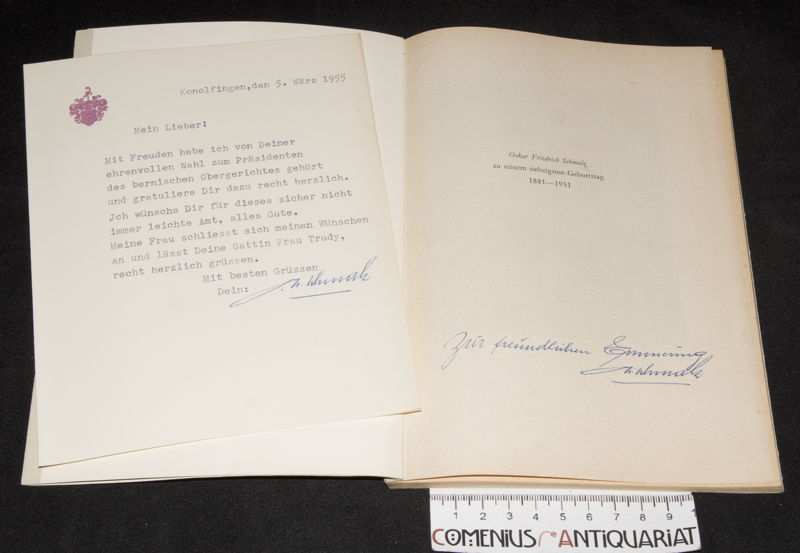 Konolfingen,den 5. März 1955
Mein Lieber!
Mit Freuden habe ich von Deiner
ehrenvollen Wahl zum Präsidenten
des bernischen Obergerichtes gehört
und gratuliere Dir dazu recht herzlich.
Jch wünsche Dir für dieses sicher nicht
immer leichte Amt, alles Gute.
Meine Frau schliesst sich meinen Wünschen
an und lässt Deine Gattin Frau Trudy,
recht herzlich grüssen.
Mit besten Grüssen
Dein:
Oskar Friedrich Schmalz
zu seinem siebzigsten Geburtstag
1881—1951
Zur freundlichen Erinnerung
1 2 3 4 5 6 7 8 9
COMENIUS ANTIQUARIAT